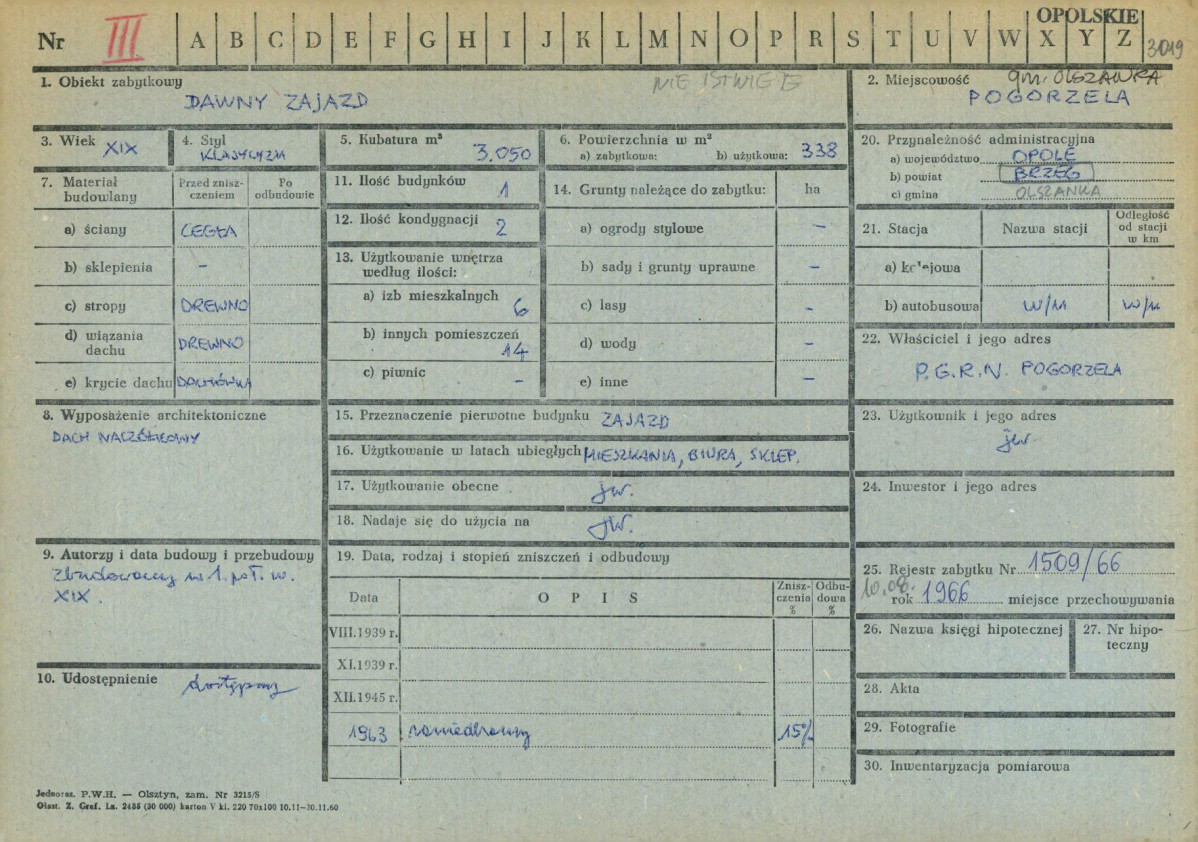 OPOLSKIE
Nr III A B C D E F G H I J K L M N O P R S T U V W X Y Z 3019
1. Obiekt zabytkowy NIE ISTNIEJE
DAWNY ZAJAZD
2. Miejscowość gm. OLSZANKA
POGORZELA
3. Wiek XIX
4. Styl
KLASYCYZM
5. Kubatura m³
3.050
6. Powierzchnia w m²
a) zabytkowa: b) użytkowa: 338
7. Materiał budowlany
Przed zniszczeniem
Po odbudowie
a) ściany CEGŁA
b) sklepienia –
c) stropy DREWNO
d) wiązania dachu DREWNO
e) krycie dachu DACHÓWKA
8. Wyposażenie architektoniczne
DACH NACZÓŁKOWY
9. Autorzy i data budowy i przebudowy
Zbudowany w 1. poł. w.
XIX.
10. Udostępnienie dostępny
11. Ilość budynków
1
12. Ilość kondygnacji
2
13. Użytkowanie wnętrza
według ilości:
a) izb mieszkalnych
6
b) innych pomieszczeń
14
c) piwnic –
14. Grunty należące do zabytku: ha
a) ogrody stylowe –
b) sady i grunty uprawne –
c) lasy –
d) wody –
e) inne –
15. Przeznaczenie pierwotne budynku ZAJAZD
16. Użytkowanie w latach ubiegłych MIESZKANIA, BIURA, SKLEP.
17. Użytkowanie obecne jw.
18. Nadaje się do użycia na jw.
19. Data, rodzaj i stopień zniszczeń i odbudowy
Data OPIS Zniszczenia % Odbudowa %
VIII.1939 r.
XI.1939 r.
XII.1945 r.
1963 zaniedbany 15%
20. Przynależność administracyjna
a) województwo OPOLE
b) powiat BRZEG
c) gmina OLSZANKA
21. Stacja Nazwa stacji Odległość od stacji w km
a) kolejowa
b) autobusowa w/m w/m
22. Właściciel i jego adres
P.G.R.N. POGORZELA
23. Użytkownik i jego adres
jw
24. Inwestor i jego adres
25. Rejestr zabytku Nr 1509/66
10.08. rok 1966 miejsce przechowywania
26. Nazwa księgi hipotecznej
27. Nr hipoteczny
28. Akta
29. Fotografie
30. Inwentaryzacja pomiarowa
Jednoraz. P.W.H. — Olsztyn, zam. Nr 3215/S
Olszt. Z. Graf. Lz. 2485 (30 000) karton V kl. 220 70x100 10.11—30.11.60